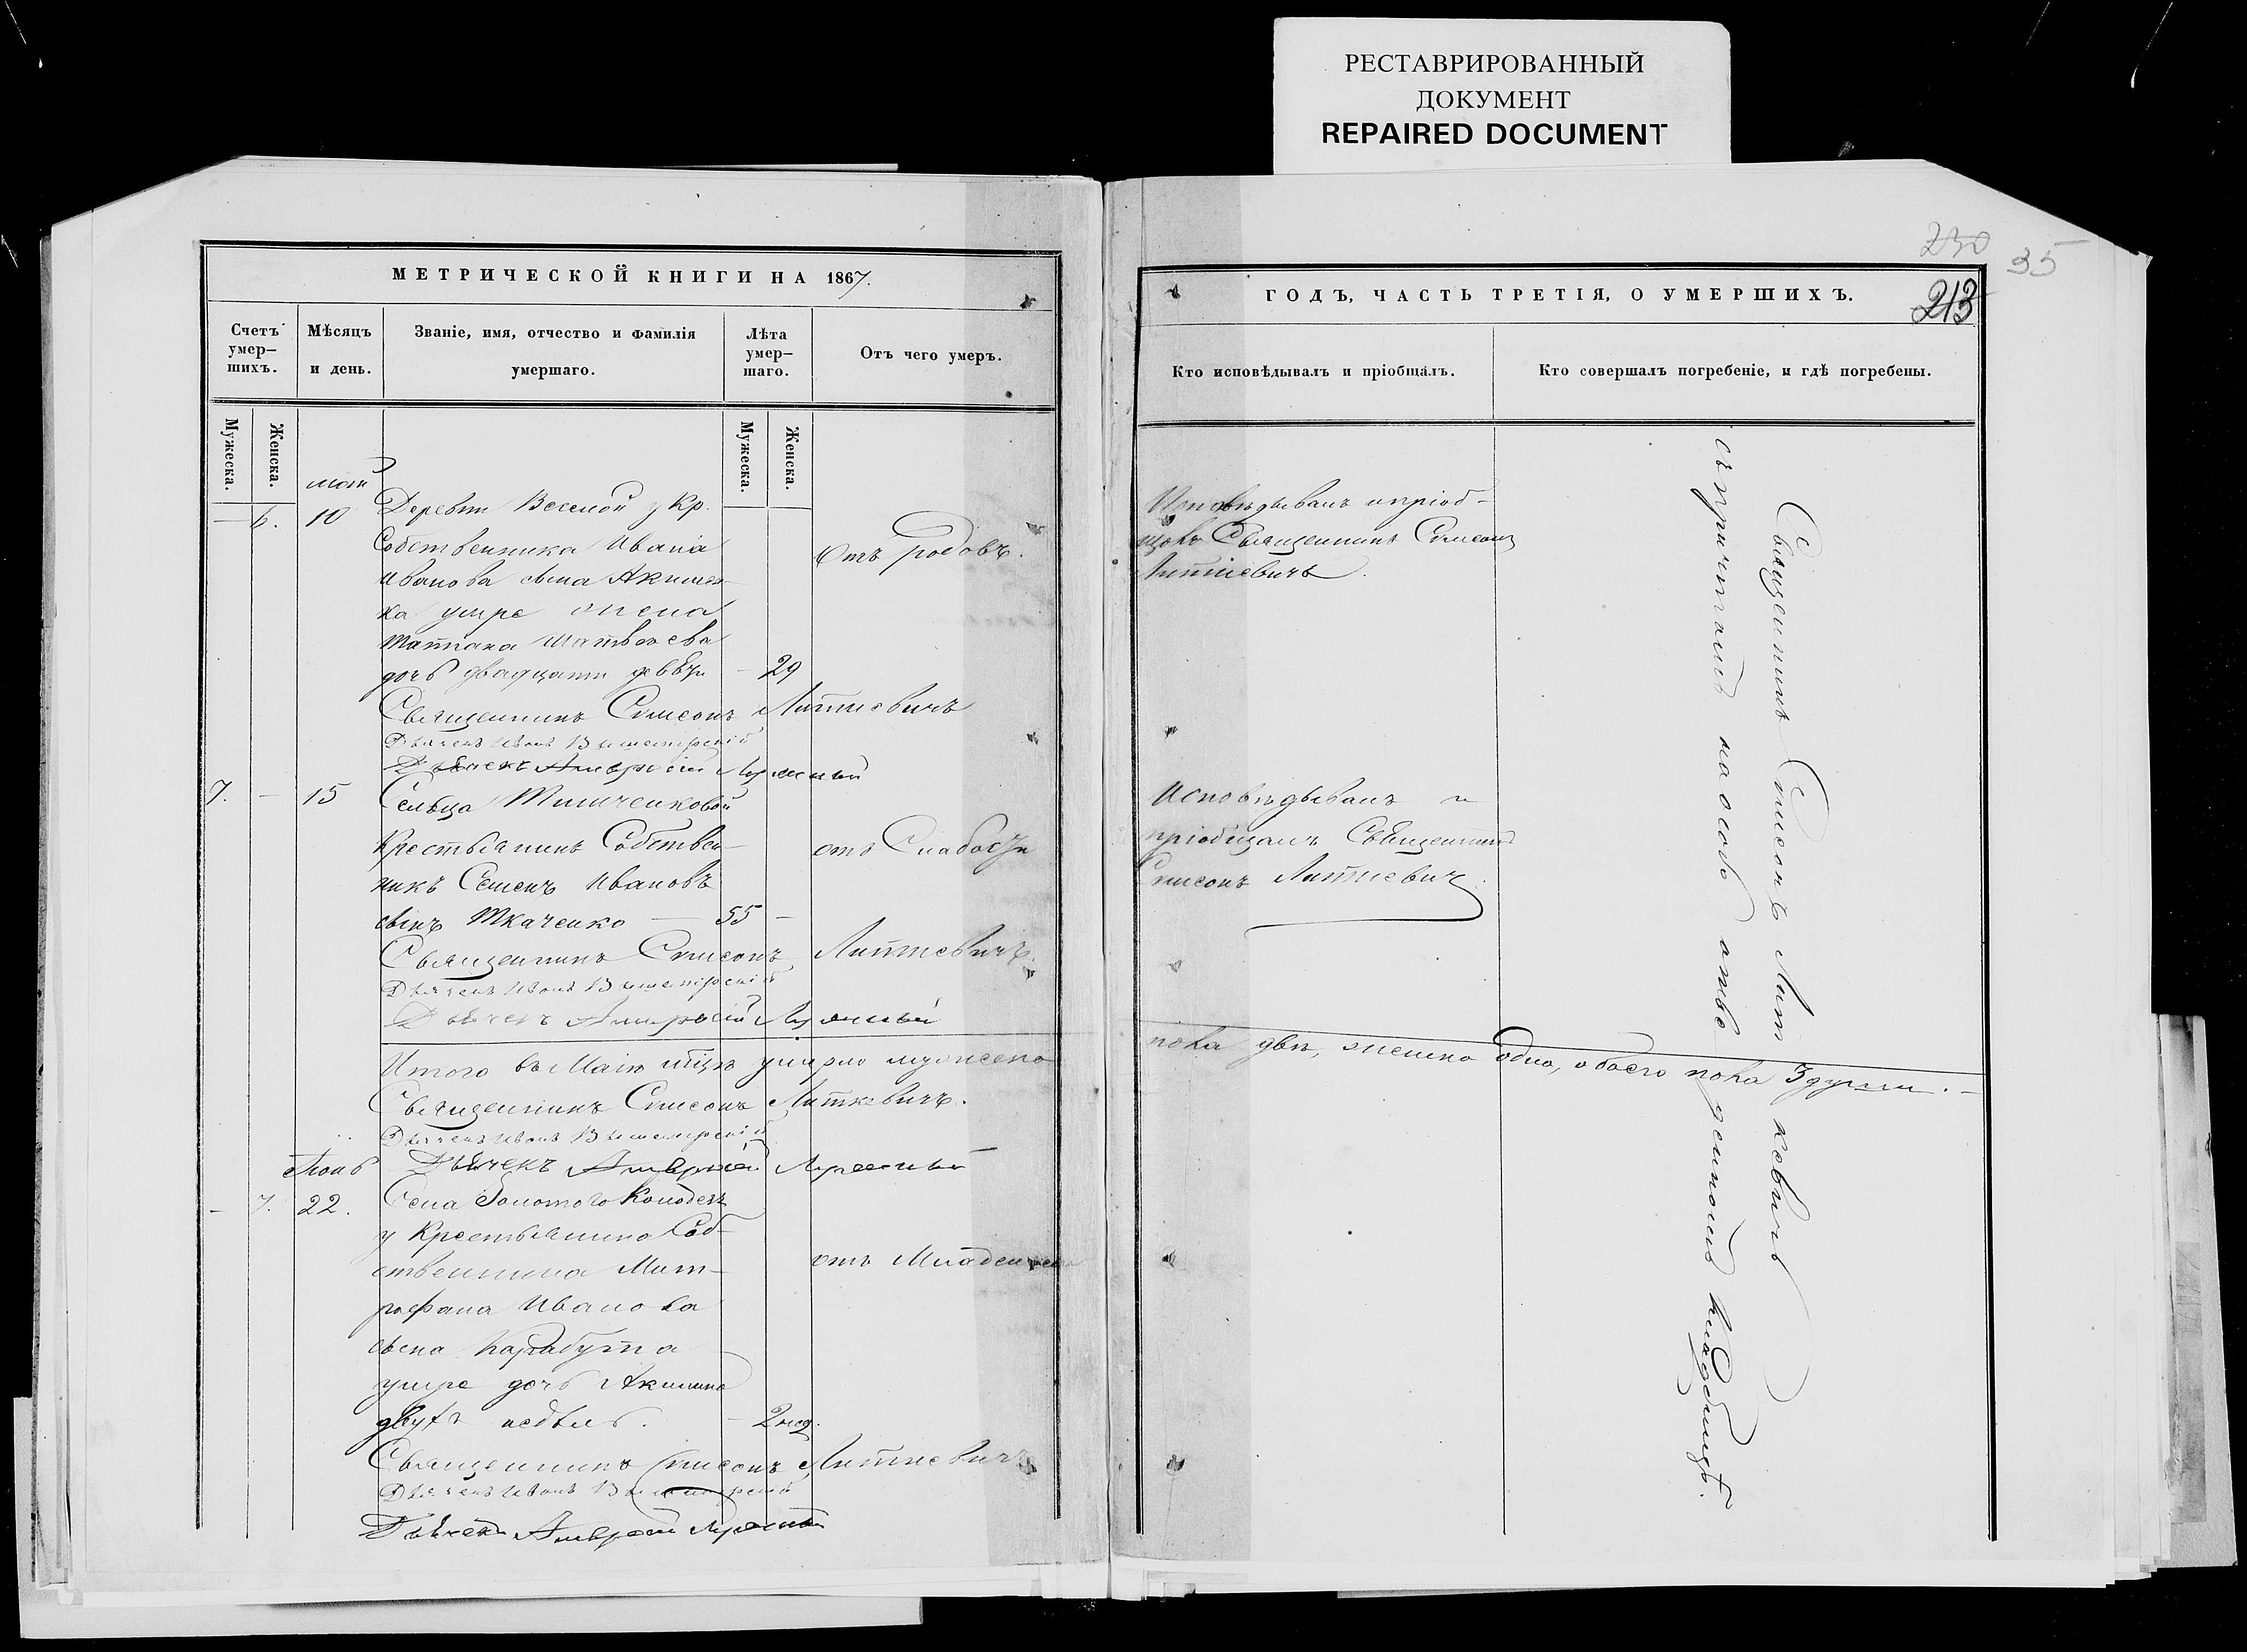 РЕСТАВРИРОВАННЫЙ
ДОКУМЕНТ
REPAIRED DOCUMENT
МЕТРИЧЕСКОЙ КНИГИ НА 1867.
Счетъ умер—шихъ.
Мѣсяцъ и день.
Званіе, имя, отчество и фамилія умершаго.
Лѣта умер—шаго.
Отъ чего умеръ.
Мужеска.
Женска.
Мужеска.
Женска.
Май
— 6. 10
Деревни Веселой у Кр.
Собственника Ивана
Иванова сына
ка умре жена
Татіана Матвѣева
дочь двадцати девяти — 29
Отъ родовъ.
Священникъ Симеонъ Литкевичъ
Дьячекъ Иванъ
Дьячекъ Амвросій
7. — 15
Сельца
Крестьянинъ Собствен—
никъ Семенъ Ивановъ
сынъ Ткаченко — 55 —
отъ Слабости
Священникъ Симеонъ Литкевичъ
Дьячекъ Иванъ
Дьячекъ Амвросій
Итого въ Маіѣ мѣсяцѣ умерло мужеска
Священникъ Симеонъ Литкевичъ.
Дьячекъ Иванъ
Дьячекъ Амвросій
Іюнь
— 7. 22.
Села Золотого Колодезя
у Крестьянина Соб—
ственника Мит—
рофана Иванова
сына Карабута
умре дочь Акилина
двухъ недѣль. — 2 нед.
отъ
Священникъ Симеонъ Литкевичъ
Дьячекъ Иванъ
Дьячекъ Амвросій
230 35
213
ГОДЪ, ЧАСТЬ ТРЕТІЯ, О УМЕРШИХЪ.
Кто исповѣдывалъ и пріобщалъ.
Кто совершалъ погребеніе, и гдѣ погребены.
Исповѣдывалъ и пріоб—
щалъ Священникъ Симеонъ
Литкевичъ.
Исповѣдывалъ и
пріобщалъ Священникъ
Симеонъ Литкевичъ.
пола двѣ, женска одна, обоего пола 3 души. —
Священникъ Симеонъ Литкевичъ
съ причтомъ на особо отведенномъ кладбищѣ.